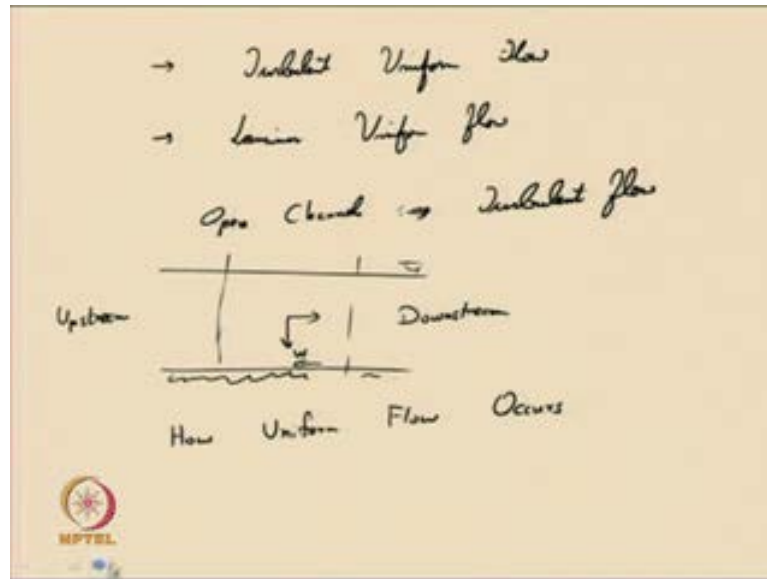 → Turbulent Uniform Flow
→ Laminar Uniform flow
Open Channel → Turbulent flow
Upstream Downstream
W
How Uniform Flow Occurs
NPTEL